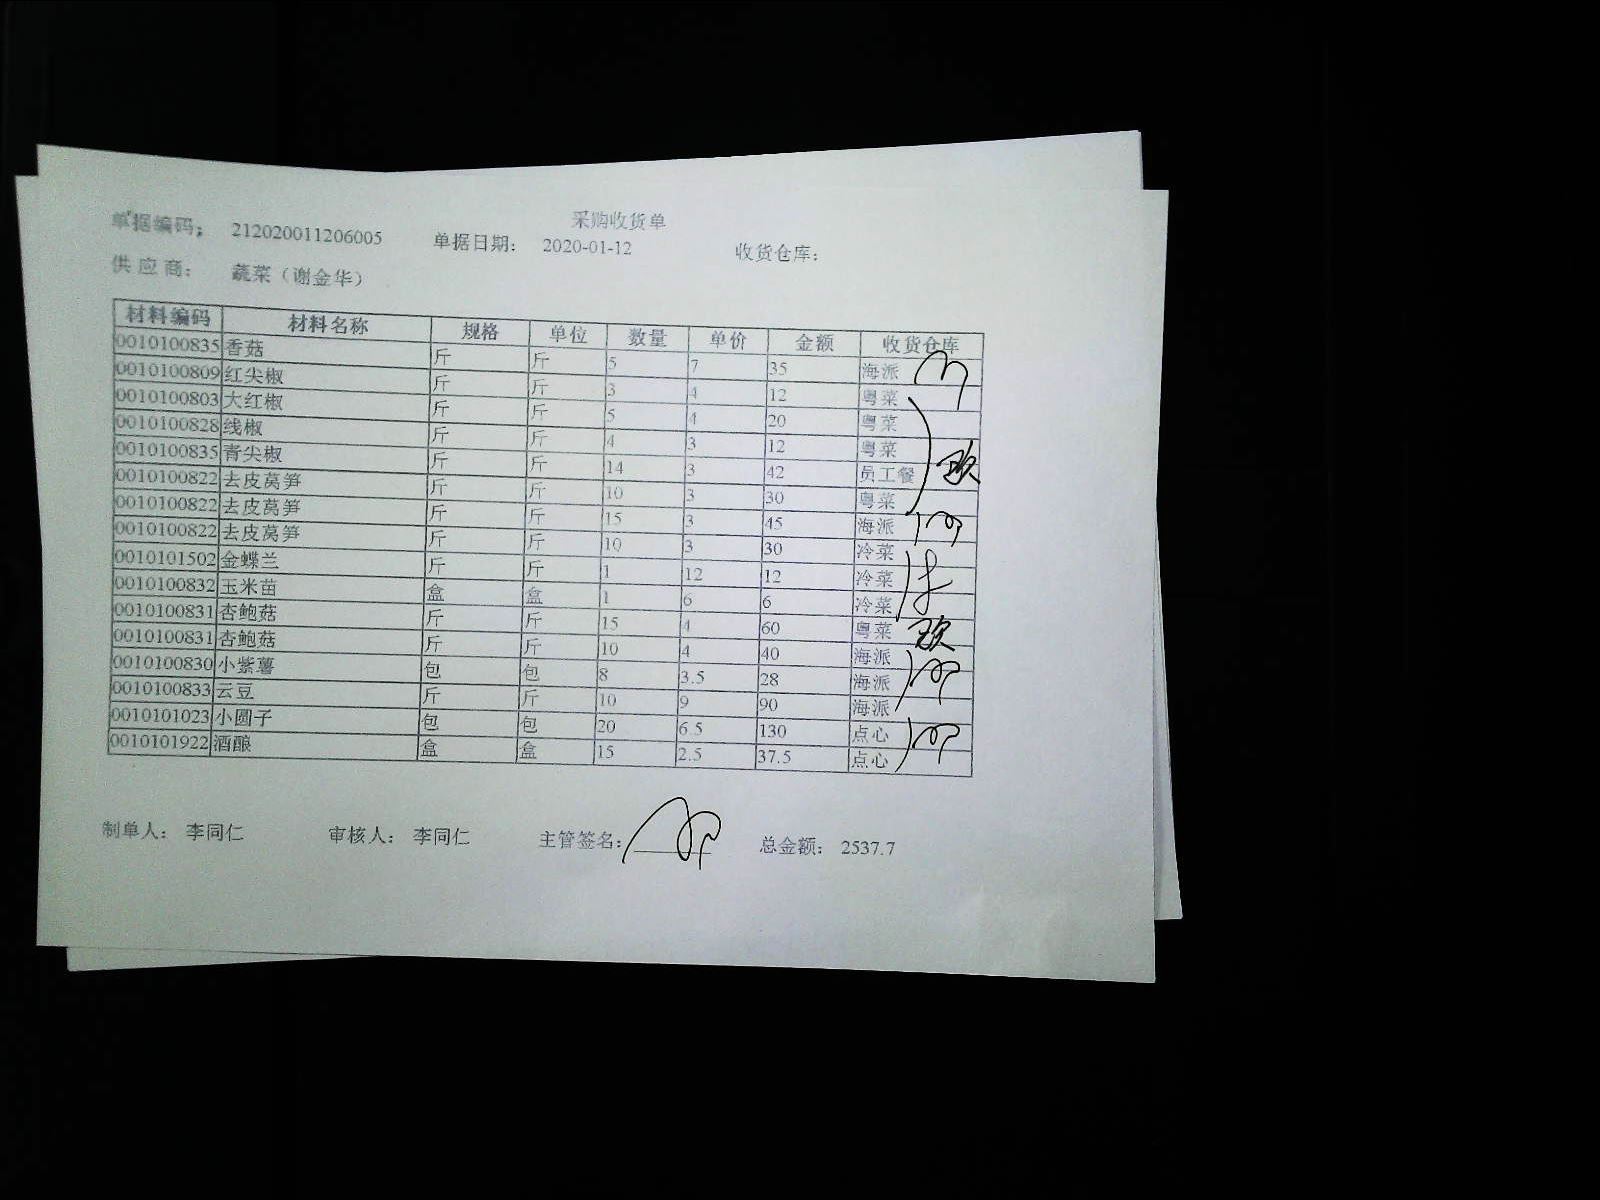 采购收货单
单据编码： 212020011206005 单据日期： 2020-01-12 收货仓库：
供 应 商： 蔬菜（谢金华）
材料编码 材料名称 规格 单位 数量 单价 金额 收货仓库
0010100835 香菇 斤 斤 5 7 35 海派
0010100809 红尖椒 斤 斤 3 4 12 粤菜
0010100803 大红椒 斤 斤 5 4 20 粤菜
0010100828 线椒 斤 斤 4 3 12 粤菜
0010100835 青尖椒 斤 斤 14 3 42 员工餐
0010100822 去皮莴笋 斤 斤 10 3 30 粤菜
0010100822 去皮莴笋 斤 斤 15 3 45 海派
0010100822 去皮莴笋 斤 斤 10 3 30 冷菜
0010101502 金蝶兰 斤 斤 1 12 12 冷菜
0010100832 玉米苗 盒 盒 1 6 6 冷菜
0010100831 杏鲍菇 斤 斤 15 4 60 粤菜
0010100831 杏鲍菇 斤 斤 10 4 40 海派
0010100830 小紫薯 包 包 8 3.5 28 海派
0010100833 云豆 斤 斤 10 9 90 海派
0010101023 小圆子 包 包 20 6.5 130 点心
0010101922 酒酿 盒 盒 15 2.5 37.5 点心
制单人： 李同仁 审核人： 李同仁 主管签名： 总金额： 2537.7